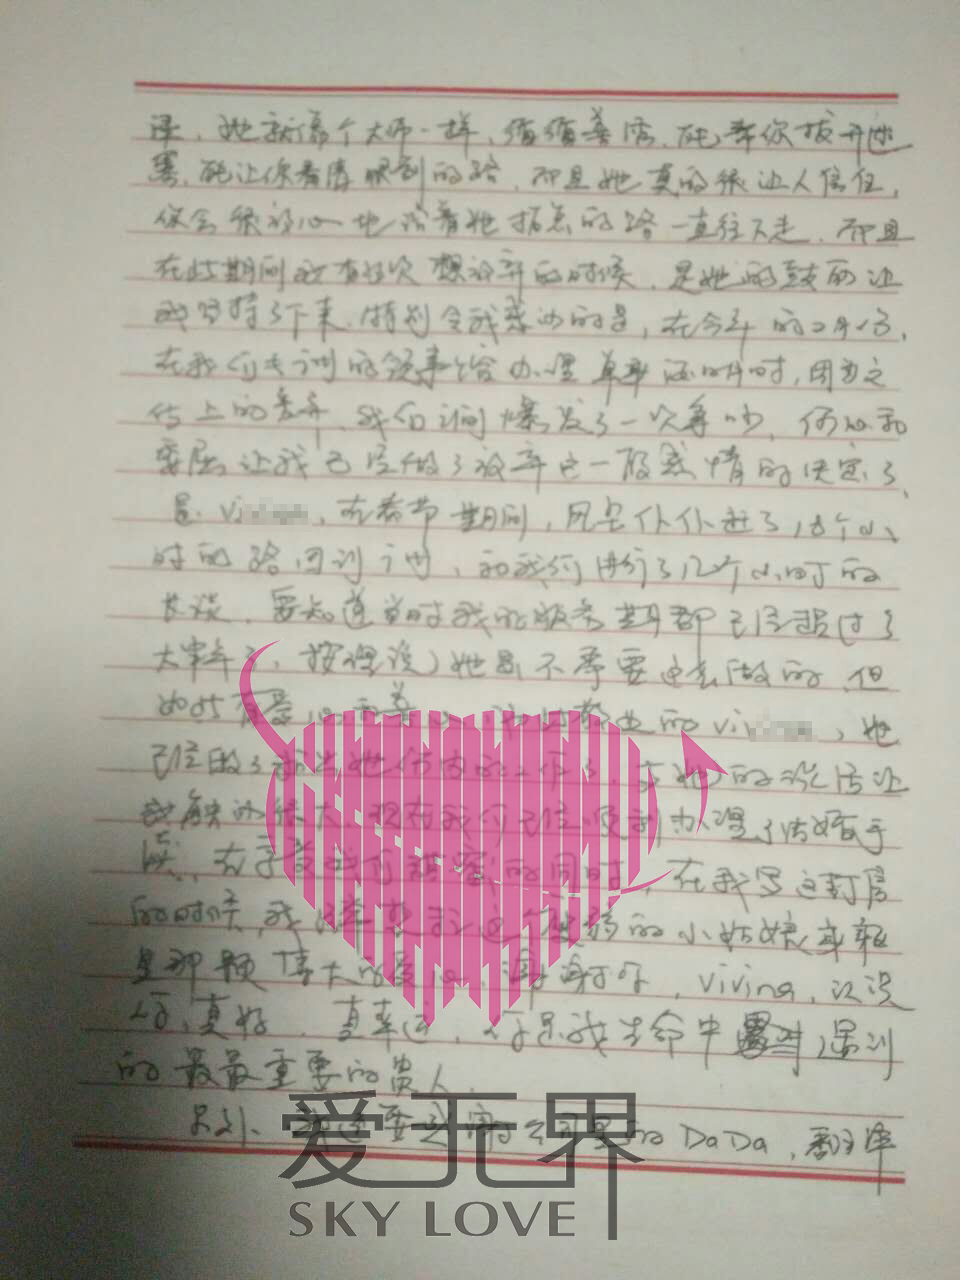 译，她就像个大师一样，循循善诱，能帮你拨开迷
雾，能让你看清眼前的路，而且她真的很让人信任，
你会很放心地沿着她指点的路一直往下走，而且
在此期间我有好次想放弃的时候，是她的鼓励让
我坚持了下来，特别令我感动的是，在今年的2月份，
在我们去 的领事馆办理单身证明时，因为
上的 ，我们之间爆发了一次争吵，伤心和
委屈让我已经做了放弃这一段感情的决定了，
是Vi ，在春节期间，风尘仆仆赶了18个小
时的路回到 ，和我们进行了几个小时的
长谈，要知道当时我的服务期都已经超过了
大半年了，按理说，她是不需要这么做的，但
如此有爱心 的Vi ，她
已经做了 她份内的工作了， 她的说话让
我触动很大，现在我们已经顺利办理了结婚手
续，在 我们 的同时，在我写这封信
的时候，我 想起 的小姑娘
是那颗伟大的爱心，谢谢你，Vivina，认识
你，真好， ，你是我生命中 遇到
的最最重要的贵人。
另外，我还要感谢公司里的DaDa，翻译
爱无界
SKY LOVE